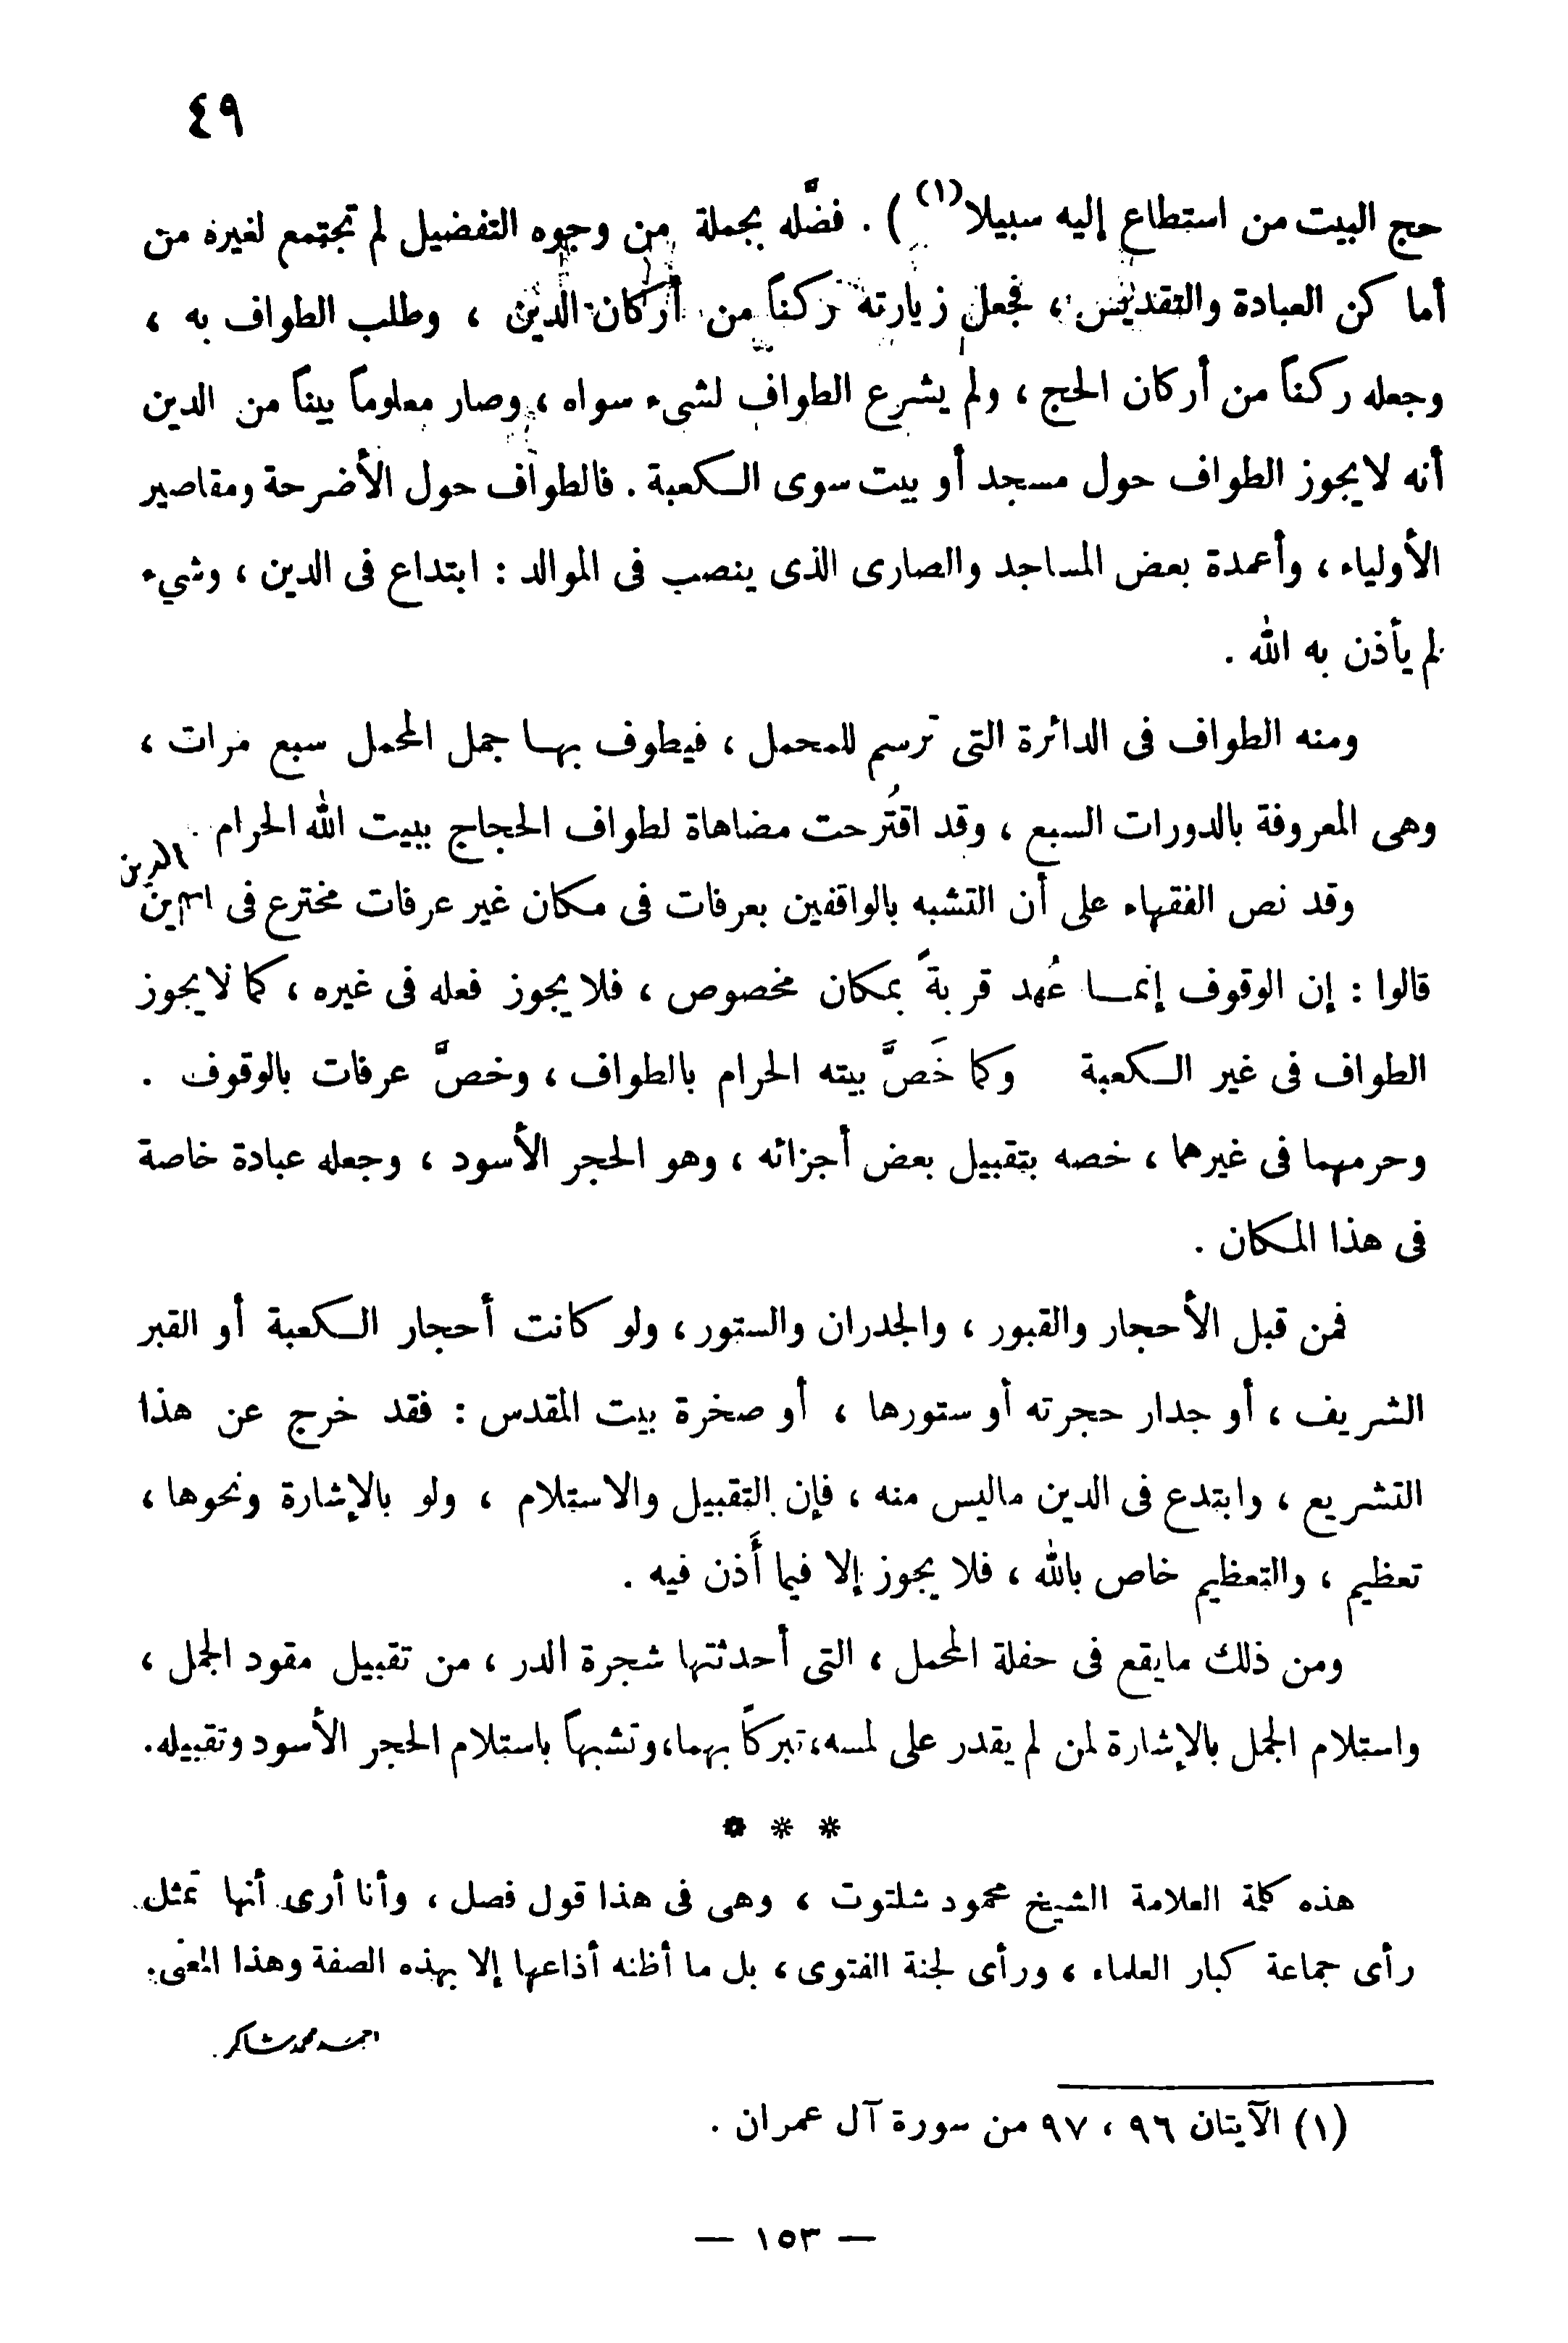 ٤٩
حج البيت من استطاع إليه سبيلا (١) ) . فضَّله بجملة من وجوه التفضيل لم تجتمع لغيره من
أما كن العبادة والتقديس ، فجعل زيارته ركناً من أركان الدين ، وطلب الطواف به ،
وجعله ركناً من أركان الحج ، ولم يشرع الطواف لشىء سواه ، وصار معلوماً بيناً من الدين
أنه لا يجوز الطواف حول مسجد أو بيت سوى الكعبة . فالطواف حول الأضرحة ومقاصير
الأولياء ، وأعمدة بعض المساجد والصارى الذى ينصب فى الموالد : ابتداع فى الدين ، وشيء
لم يأذن به الله .
ومنه الطواف فى الدائرة التى ترسم للمحمل ، فيطوف بها جمل المحمل سبع مرات ،
وهى المعروفة بالدورات السبع ، وقد اقتُرحت مضاهاة لطواف الحجاج ببيت الله الحرام .
الدين
وقد نص الفقهاء على أن التشبه بالواقفين بعرفات فى مكان غير عرفات مخترع فى
قالوا : إن الوقوف إنما عُهد قربةً بمكان مخصوص ، فلا يجوز فعله فى غيره ، كما لا يجوز
الطواف فى غير الكعبة وكما خَصَّ بيته الحرام بالطواف ، وخصَّ عرفات بالوقوف .
وحرمهما فى غيرهما ، خصه بتقبيل بعض أجزائه ، وهو الحجر الأسود ، وجعله عبادة خاصة
فى هذا المكان .
فمن قبل الأحجار والقبور ، والجدران والستور ، ولو كانت أحجار الكعبة أو القبر
الشريف ، أو جدار حجرته أو ستورها ، أو صخرة بيت المقدس : فقد خرج عن هذا
التشريع ، وابتدع فى الدين ماليس منه ، فإن التقبيل والاستلام ، ولو بالإشارة ونحوها ،
تعظيم ، والتعظيم خاص بالله ، فلا يجوز إلا فيما أَذن فيه .
ومن ذلك مايقع فى حفلة المحمل ، التى أحدثتها شجرة الدر ، من تقبيل مقود الجمل ،
واستلام الجمل بالإشارة لمن لم يقدر على لمسه، تبركاً بهما، وتشبهاً باستلام الحجر الأسود وتقبيله.
* * *
هذه كلمة العلامة الشيخ محمود شلتوت ، وهى فى هذا قول فصل ، وأنا أرى أنها تمثل
رأى جماعة كبار العلماء ، ورأى لجنة الفتوى ، بل ما أظنه أذاعها إلا بهذه الصفة وهذا المعنى .
احمد محمد شاكر
(١) الآيتان ٩٦ ، ٩٧ من سورة آل عمران .
— ١٥٣ —